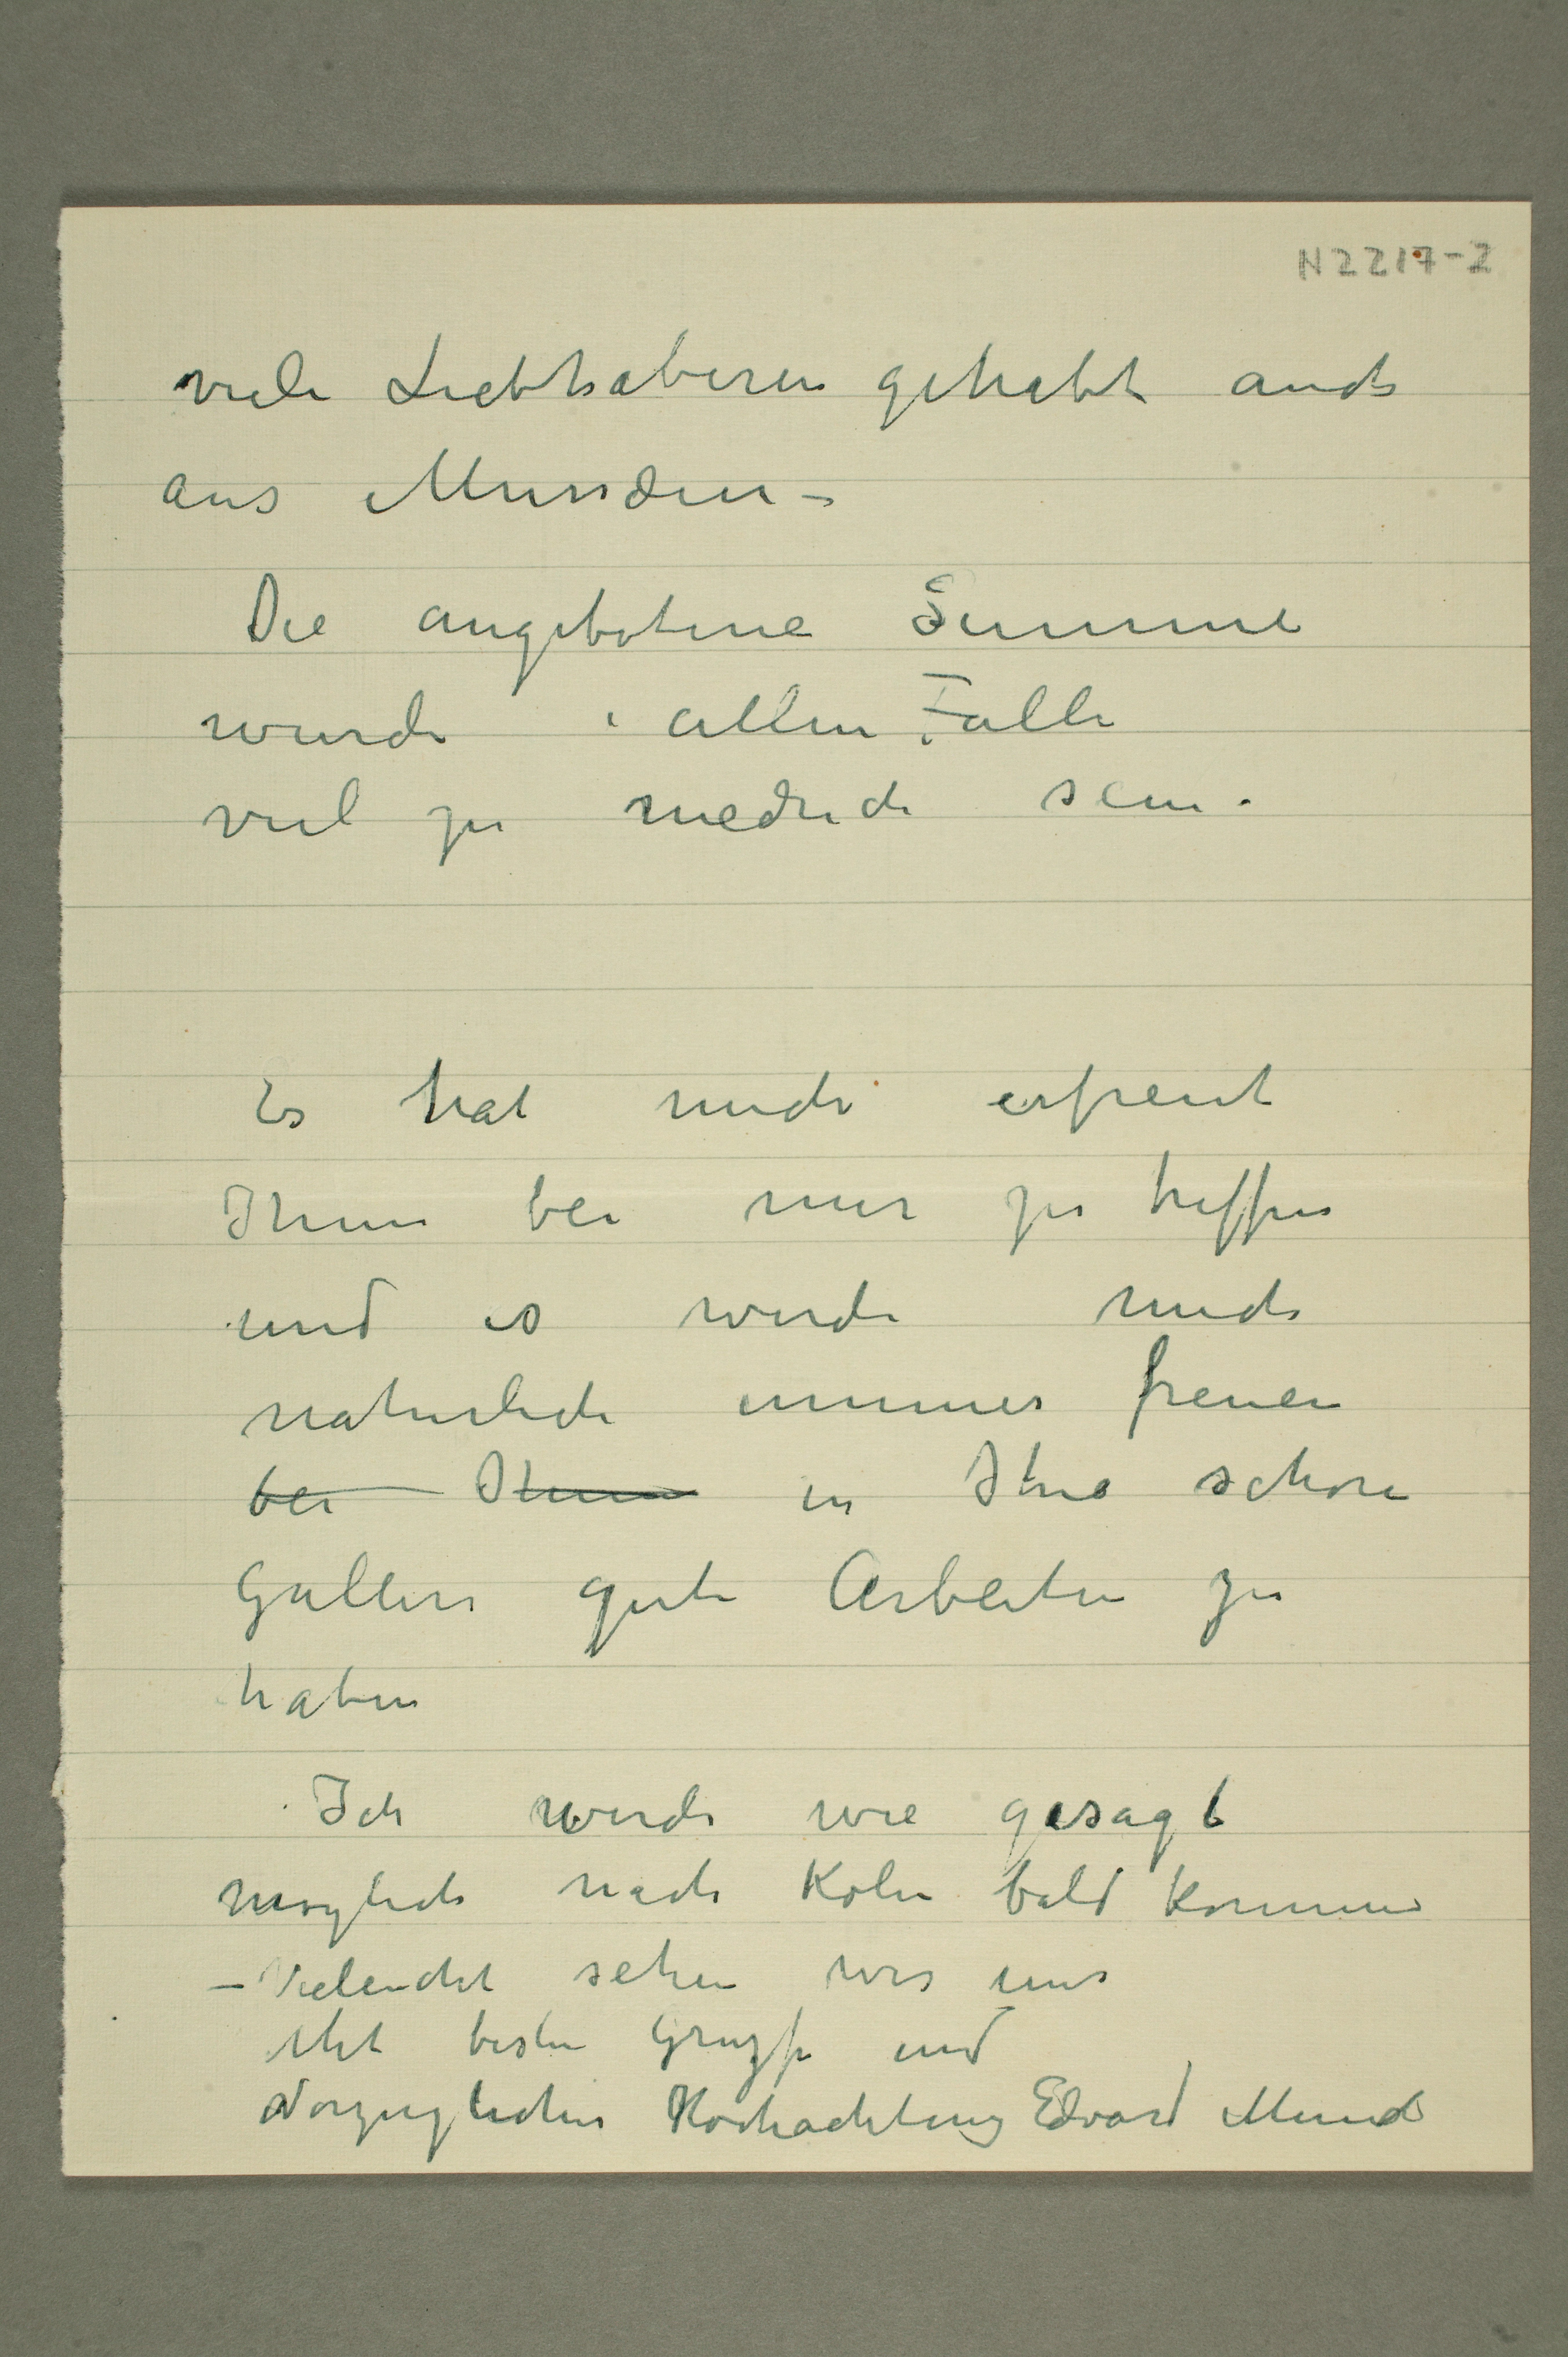 N 2217-2
viele Liebhaberen gehabt auch
aus Museen –
Die angebotene Summe
wurde i allen Falle
viel zu niedrich sein.
Es hat mich erfreut
Ihnen bei mir zu treffen
und es wurde mich
naturlich immer freuen
bei Ihnen in Ihre schone
Galleri gute Arbeiten zu
haben
Ich werde wie gesagt
moglich nach Koln bald kommen
– Vieleicht sehen wir uns
Mit besten Gruzse und
Vorzuglicher Hochachtung Edvard Munch